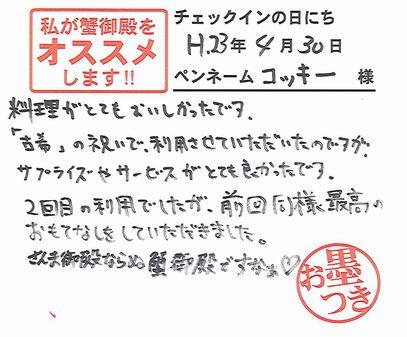 私が蟹御殿を
オススメ
します!!
チェックインの日にち
H.23年4月30日
ペンネーム コッキー 様
料理がとてもおいしかったです。
「古希」の祝いで、利用させていただいたのですが、
サプライズやサービスがとても良かったです。
2回目の利用でしたが、前回同様最高の
おもてなしをしていただきました。
さんま御殿ならぬ蟹御殿ですなぁ♡
お墨つき